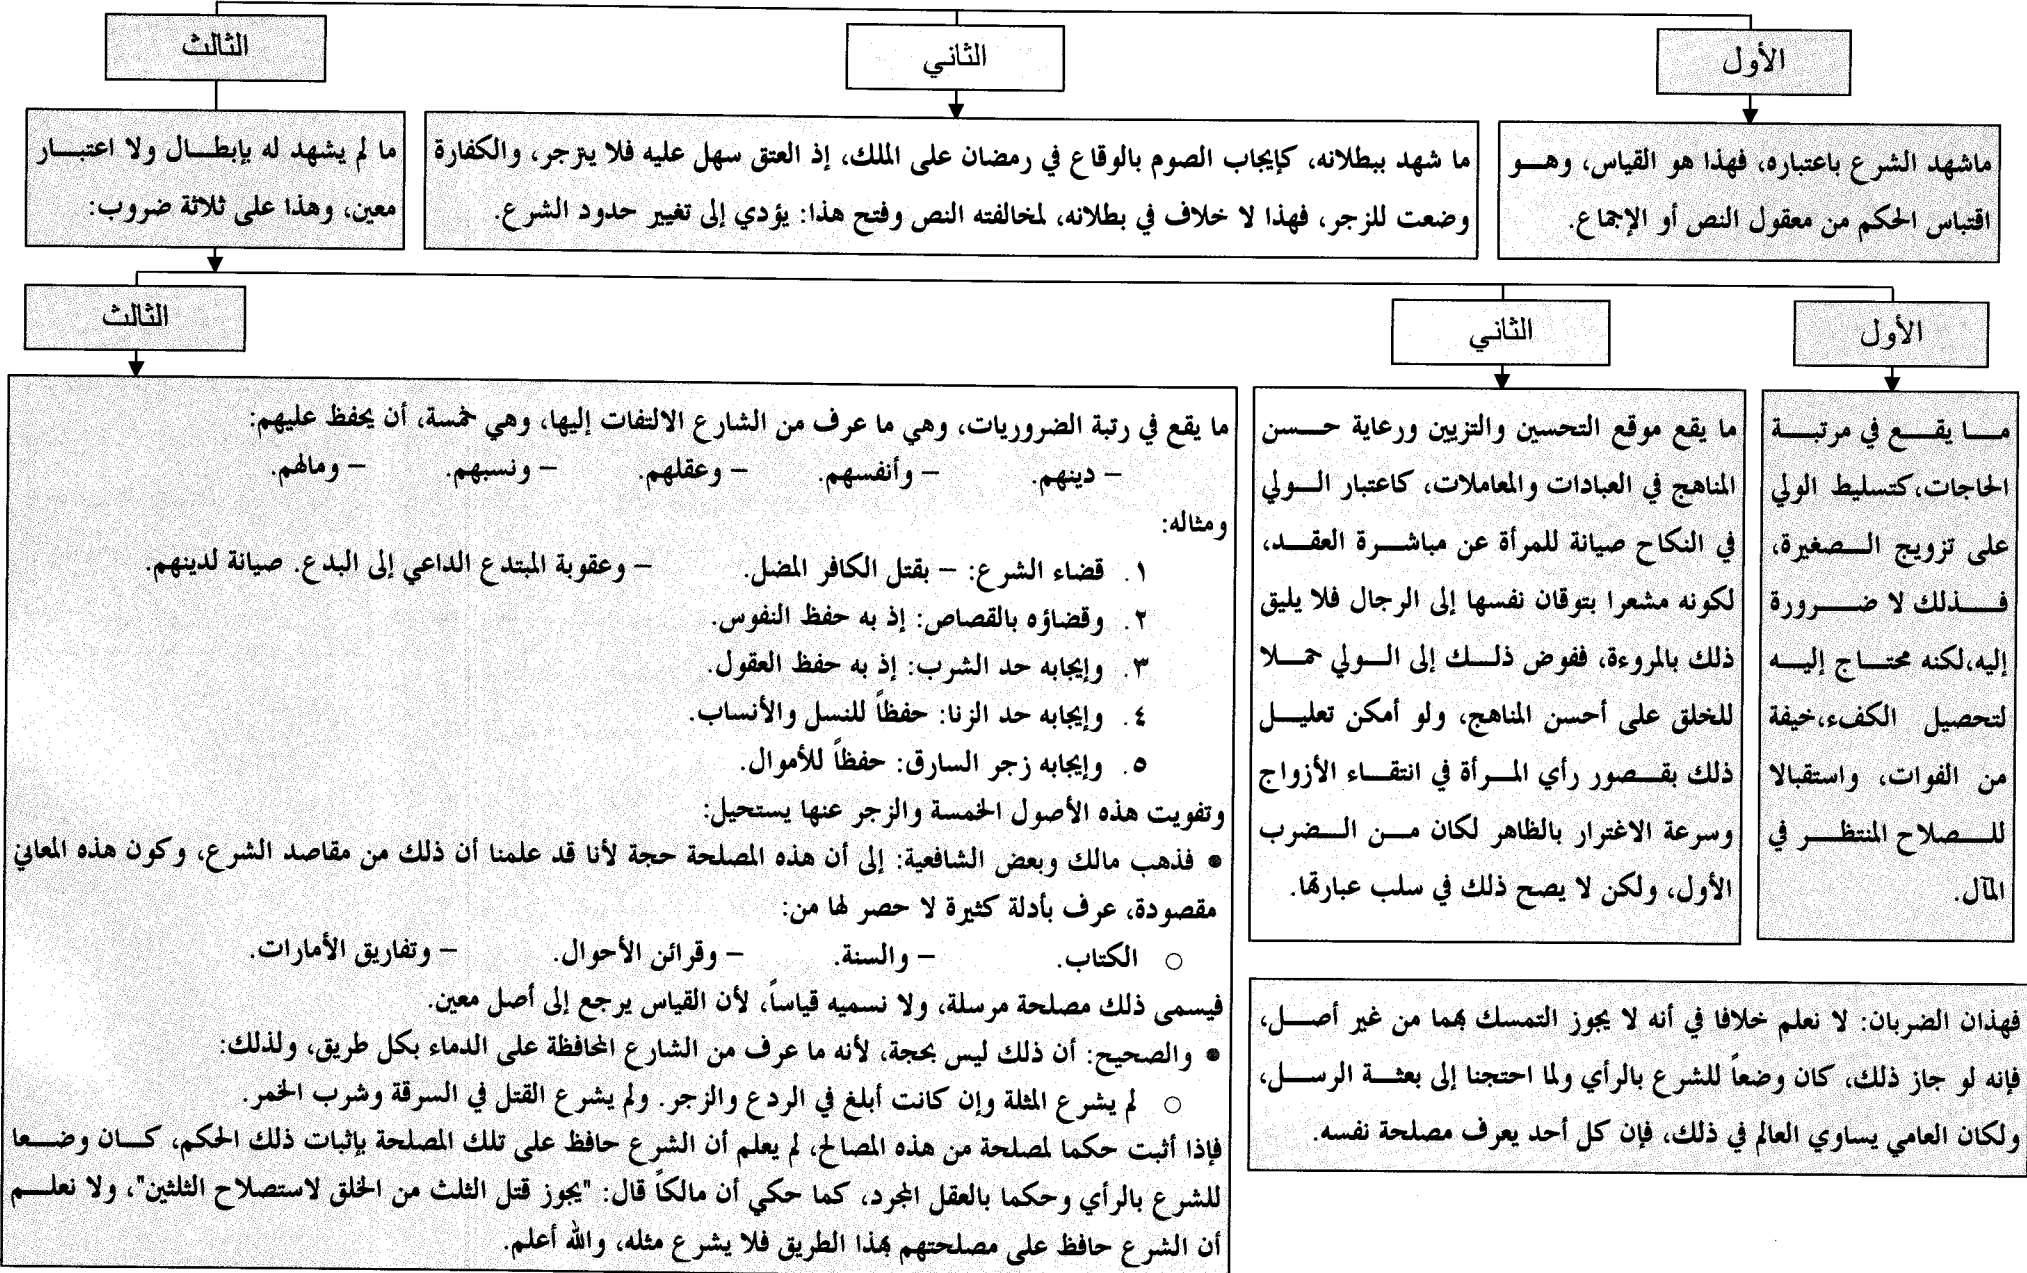 الأول
الثاني
الثالث
ماشهد الشرع باعتباره، فهذا هو القياس، وهو
اقتباس الحكم من معقول النص أو الإجماع.
ما شهد ببطلانه، كإيجاب الصوم بالوقاع في رمضان على الملك، إذ العتق سهل عليه فلا ينزجر، والكفارة
وضعت للزجر، فهذا لا خلاف في بطلانه، لمخالفته النص وفتح هذا: يؤدي إلى تغيير حدود الشرع.
ما لم يشهد له بإبطال ولا اعتبار
معين، وهذا على ثلاثة ضروب:
الأول
الثاني
الثالث
ما يقع في مرتبة
الحاجات،كتسليط الولي
على تزويج الصغيرة،
فذلك لا ضرورة
إليه،لكنه محتاج إليه
لتحصيل الكفء،خيفة
من الفوات، واستقبالا
للصلاح المنتظر في
المآل.
ما يقع موقع التحسين والتزيين ورعاية حسن
المناهج في العبادات والمعاملات، كاعتبار الولي
في النكاح صيانة للمرأة عن مباشرة العقد،
لكونه مشعرا بتوقان نفسها إلى الرجال فلا يليق
ذلك بالمروءة، ففوض ذلك إلى الولي حملا
للخلق على أحسن المناهج، ولو أمكن تعليل
ذلك بقصور رأي المرأة في انتقاء الأزواج
وسرعة الاغترار بالظاهر لكان من الضرب
الأول، ولكن لا يصح ذلك في سلب عبارتها.
فهذان الضربان: لا نعلم خلافا في أنه لا يجوز التمسك بهما من غير أصل،
فإنه لو جاز ذلك، كان وضعاً للشرع بالرأي ولما احتجنا إلى بعثة الرسل،
ولكان العامي يساوي العالم في ذلك، فإن كل أحد يعرف مصلحة نفسه.
ما يقع في رتبة الضروريات، وهي ما عرف من الشارع الالتفات إليها، وهي خمسة، أن يحفظ عليهم:
– دينهم. – وأنفسهم. – وعقلهم. – ونسبهم. – ومالهم.
ومثاله:
١. قضاء الشرع: – بقتل الكافر المضل. – وعقوبة المبتدع الداعي إلى البدع. صيانة لدينهم.
٢. وقضاؤه بالقصاص: إذ به حفظ النفوس.
٣. وإيجابه حد الشرب: إذ به حفظ العقول.
٤. وإيجابه حد الزنا: حفظاً للنسل والأنساب.
٥. وإيجابه زجر السارق: حفظاً للأموال.
وتفويت هذه الأصول الخمسة والزجر عنها يستحيل:
● فذهب مالك وبعض الشافعية: إلى أن هذه المصلحة حجة لأنا قد علمنا أن ذلك من مقاصد الشرع، وكون هذه المعاني
مقصودة، عرف بأدلة كثيرة لا حصر لها من:
○ الكتاب. – والسنة. – وقرائن الأحوال. – وتفاريق الأمارات.
فيسمى ذلك مصلحة مرسلة، ولا نسميه قياساً، لأن القياس يرجع إلى أصل معين.
● والصحيح: أن ذلك ليس بحجة، لأنه ما عرف من الشارع المحافظة على الدماء بكل طريق، ولذلك:
○ لم يشرع المثلة وإن كانت أبلغ في الردع والزجر. ولم يشرع القتل في السرقة وشرب الخمر.
فإذا أثبت حكما لمصلحة من هذه المصالح، لم يعلم أن الشرع حافظ على تلك المصلحة بإثبات ذلك الحكم، كان وضعا
للشرع بالرأي وحكما بالعقل المجرد، كما حكي أن مالكاً قال: "يجوز قتل الثلث من الخلق لاستصلاح الثلثين"، ولا نعلم
أن الشرع حافظ على مصلحتهم بهذا الطريق فلا يشرع مثله، والله أعلم.